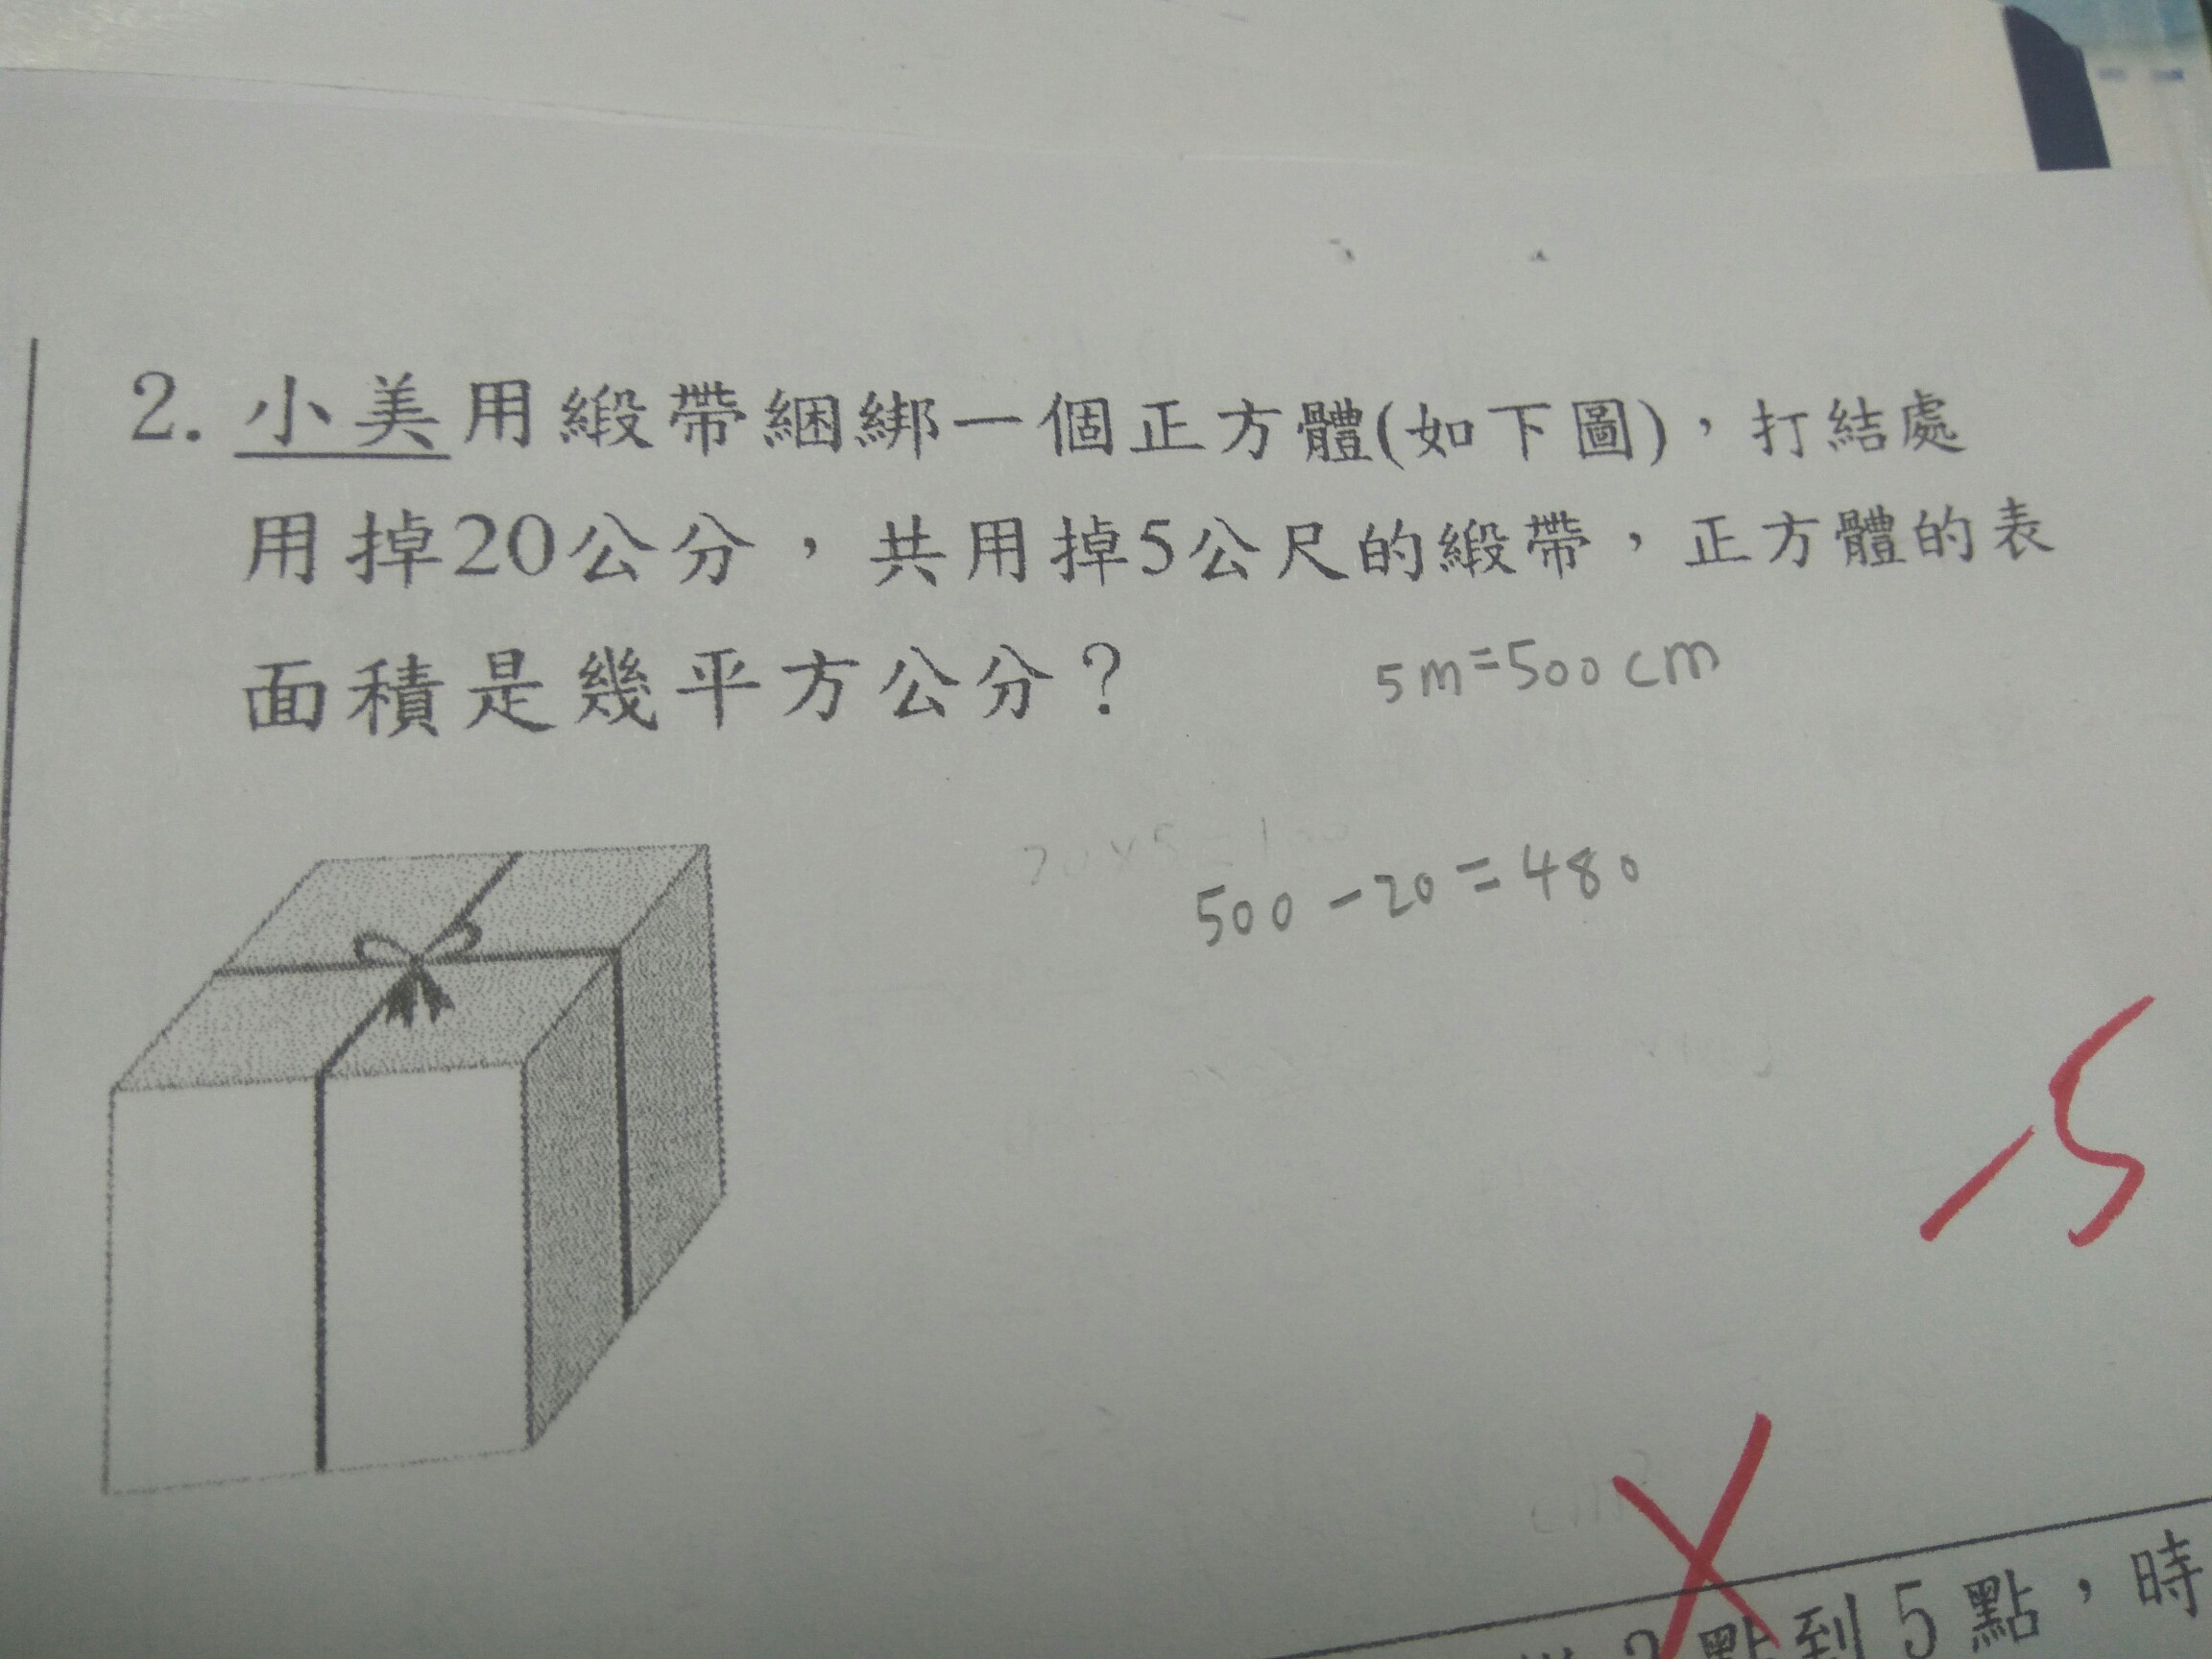 2. 小美用緞帶綑綁一個正方體(如下圖)，打結處
用掉20公分，共用掉5公尺的緞帶，正方體的表
面積是幾平方公分？
5m=500cm
500-20=480
-5
點到5點，時